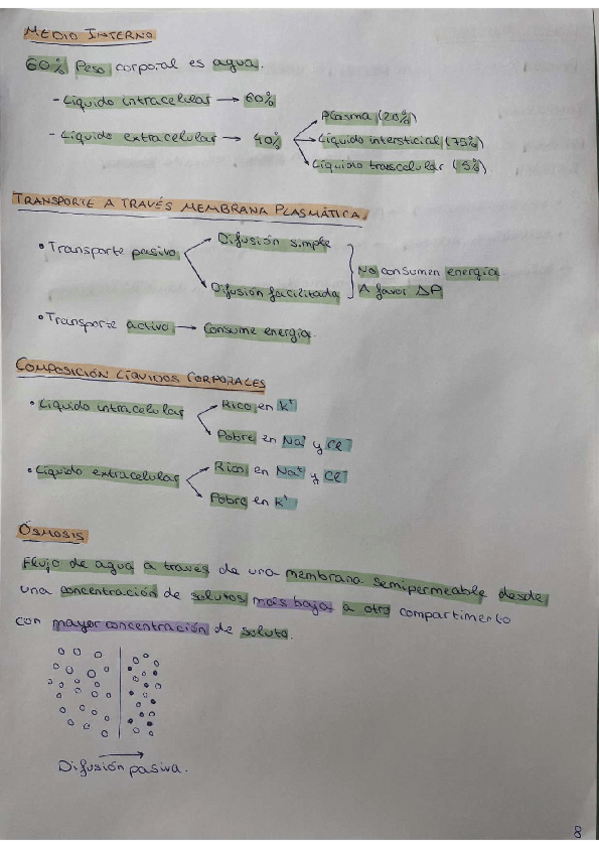 MEDIO INTERNO
60% Peso corporal es agua.
- Líquido intracelular → 60%
- Líquido extracelular → 40%
Plasma (20%)
Líquido intersticial (75%)
Líquido transcelular (5%)
TRANSPORTE A TRAVÉS MEMBRANA PLASMÁTICA.
• Transporte pasivo
Difusión simple
Difusión facilitada
No consumen energía
A favor ΔP
• Transporte activo → Consume energía.
COMPOSICIÓN LÍQUIDOS CORPORALES
• Líquido intracelular
Rico en K⁺
Pobre en Na⁺ y Cl⁻
• Líquido extracelular
Rico en Na⁺ y Cl⁻
Pobre en K⁺
ÓSMOSIS
Flujo de agua a través de una membrana semipermeable desde
una concentración de solutos más baja a otro compartimento
con mayor concentración de soluto.
Difusión pasiva.
8